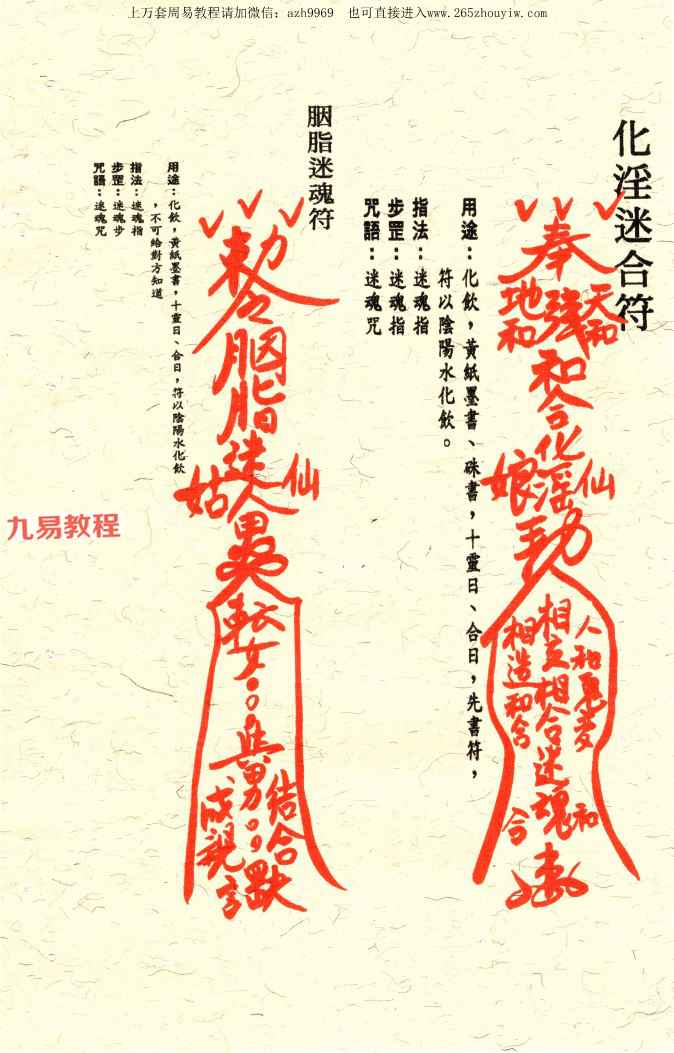 上万套周易教程请加微信：azh9969　也可直接进入www.265zhouyiw.com
化淫迷合符
用途：化飲，黃紙墨書、硃書，十靈日、合日，先書符，
符以陰陽水化飲。
指法：迷魂指
步罡：迷魂指
咒語：迷魂咒
奉
天和
地和
強和合化淫
娘
仙
相交相合迷魂
相造和合
人和
和
合
胭脂迷魂符
用途：化飲，黃紙墨書，十靈日、合日，符以陰陽水化飲
，不可給對方知道
指法：迷魂指
步罡：迷魂步
咒語：迷魂咒
敕令胭脂迷人
姑
仙
轉女○○與男○○
結合
成親
九易教程